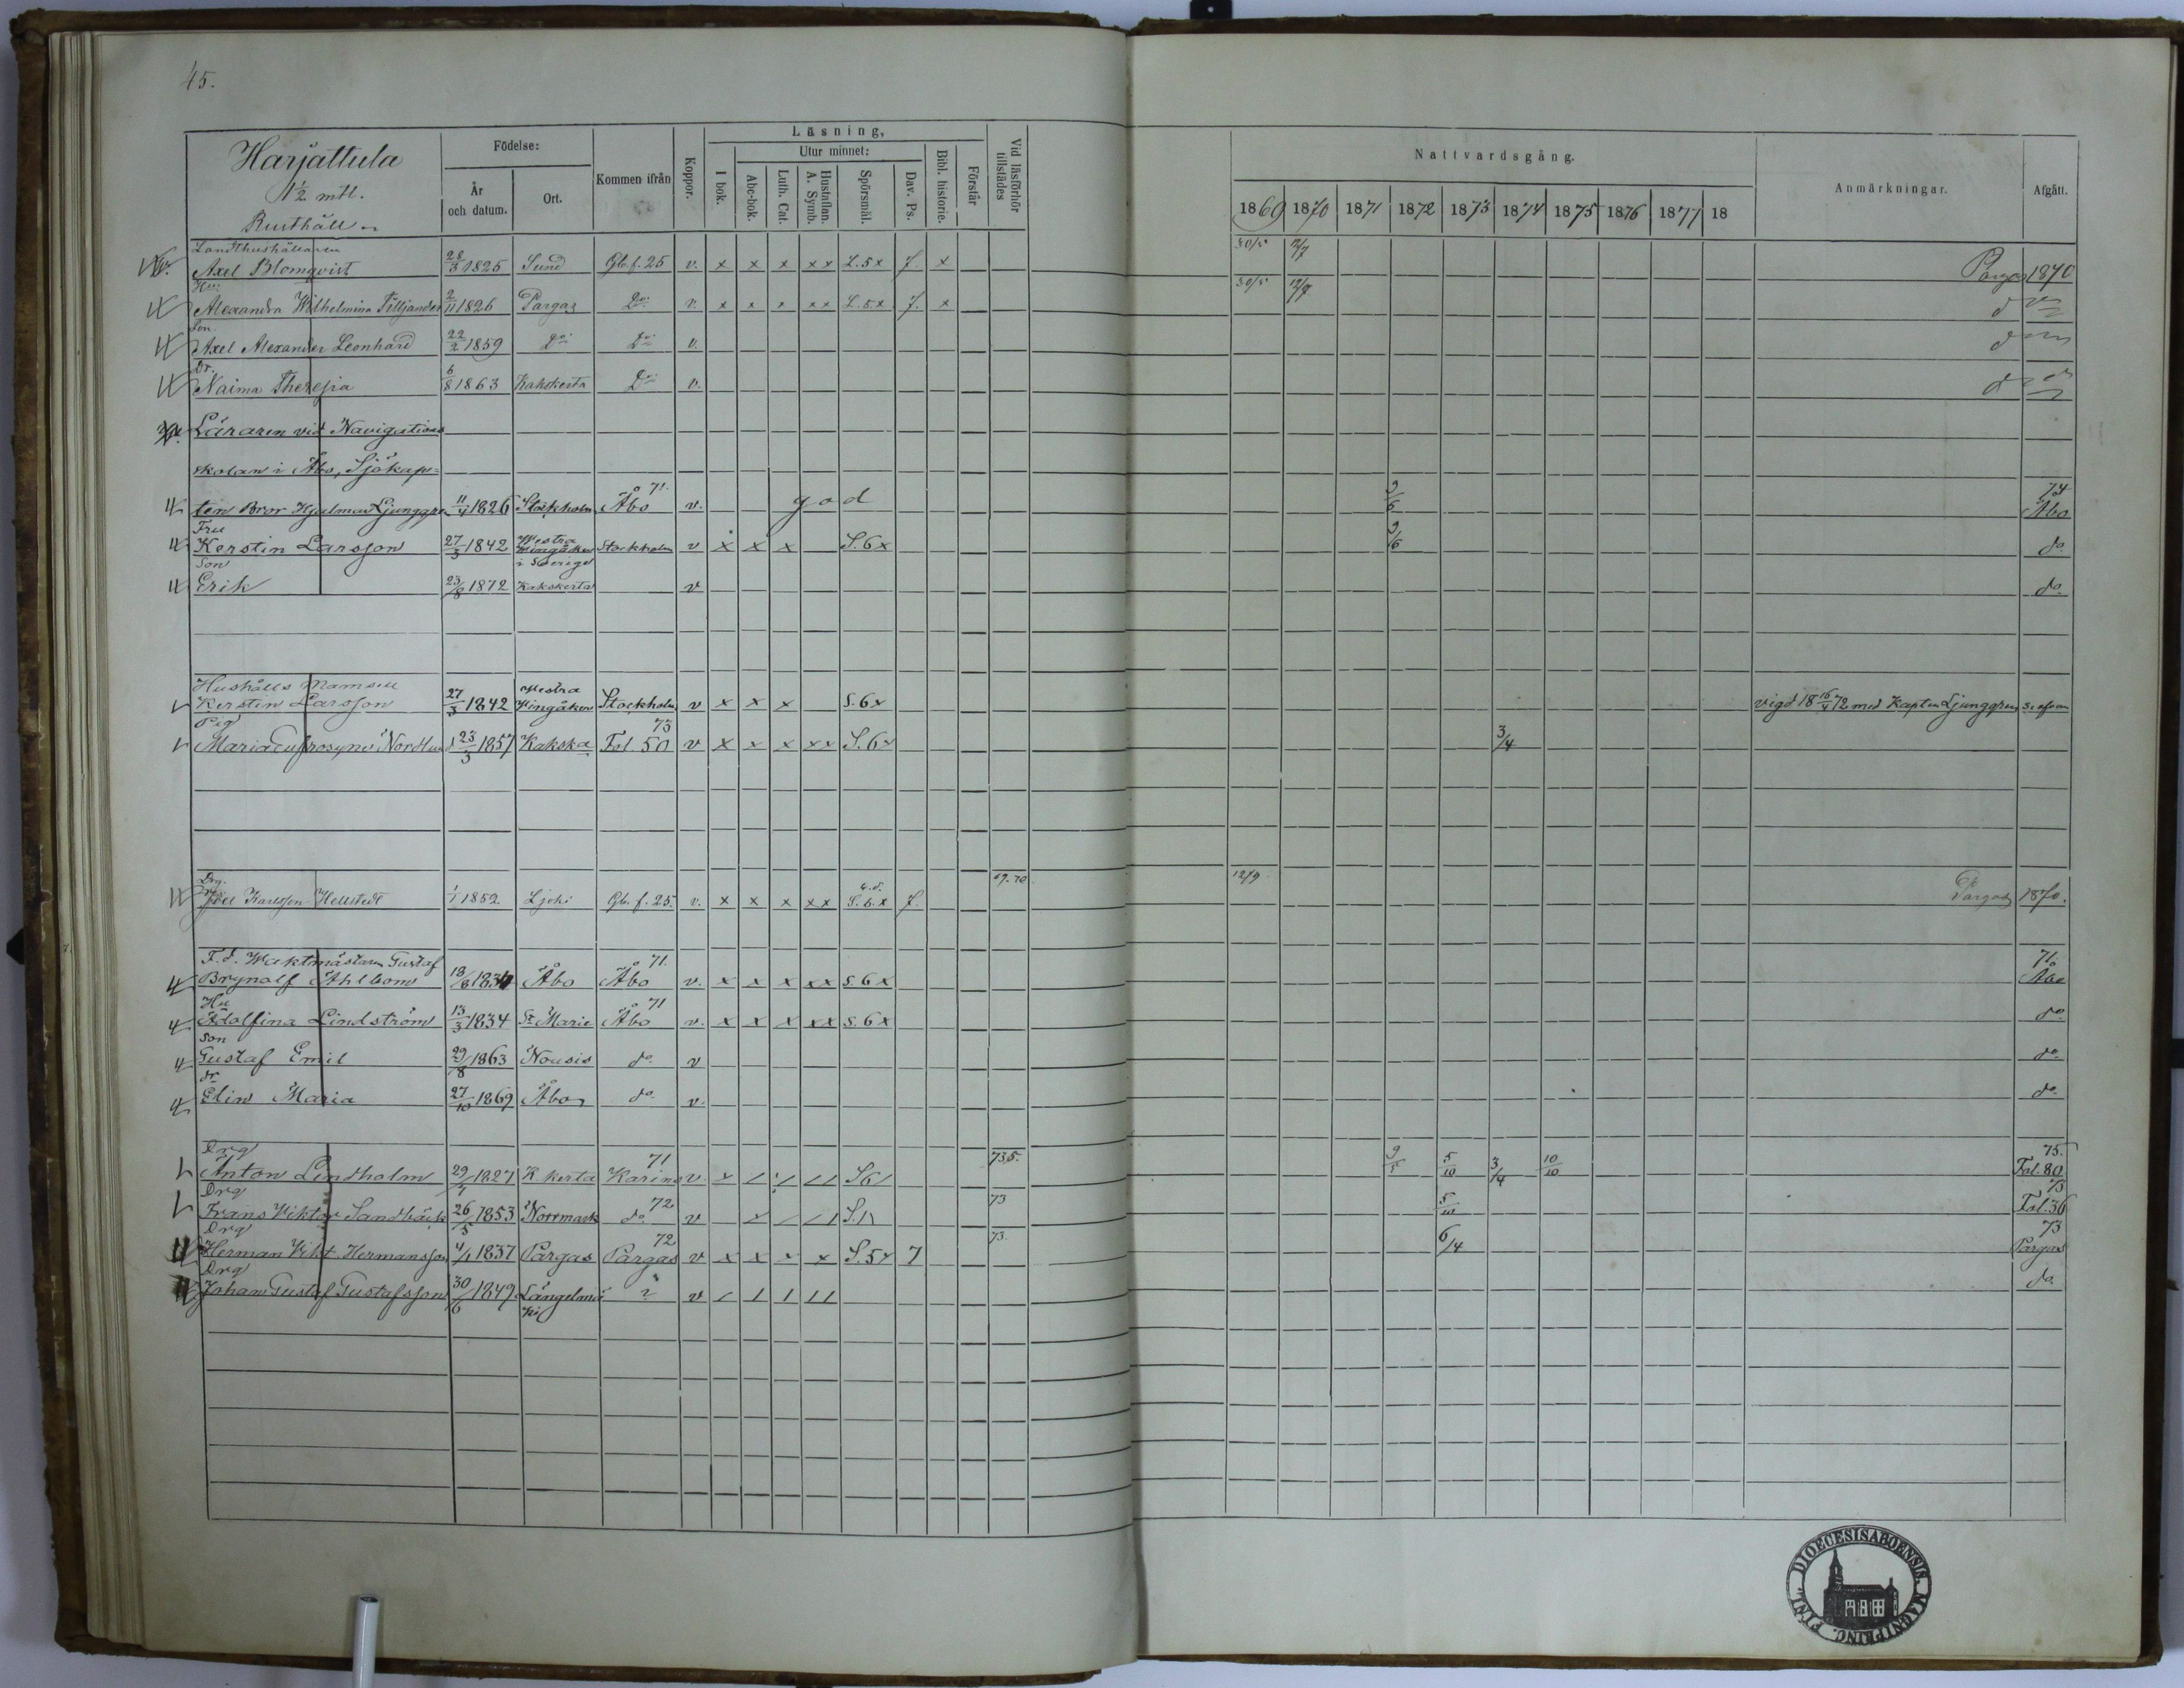 45.
Harjattula
1½ mtl.
Rusthåll
Födelse:
År och datum.
Ort.
Kommen ifrån
Koppor.
Läsning,
I bok.
Utur minnet:
Abc-bok.
Luth. Cat.
Hustaflan. A. Symb.
Spörsmål.
Dav. Ps.
Bibl. historie.
Förstår
Vid läsförhör tillstädes
Nattvardsgång.
1869 1870 1871 1872 1873 1874 1875 1876 1877 18
Anmärkningar.
Afgått.
Landthushållaren
Axel Blomqvist 28/3 1825 Sund Gb. f. 25 v. x x x xx L. 5 x 7. x 30/5 12/7 Pargas 1870
Hu:
Alexandra Wilhelmina Tilljander 2/11 1826 Pargas Do v. x x x xx L. 5 x 7. x 30/5 12/7 do
Son.
Axel Alexander Leonhard 22/2 1859 Do Do v. do
Dr.
Naima Theresia 6/8 1863 Kakskerta Do v. do
Läraren vid Navigations
skolan i Åbo, Sjökap=
ten Bror Hjalmar Ljunggren 11/4 1826 Stockholm Åbo 71. v. god 9/6 74 Åbo
Fru
Kerstin Larsson 27/3 1842 Westra Wingåker i Sverige Stockholm v x x x S. 6 x 9/6 do
Son
Erik 23/8 1872 Kakskerta v do
Hushålls Mamsell
Kerstin Larsson 27/3 1842 Westra Wingåker Stockholm v x x x S. 6 x vigd 18 16/4 72 med Kapten Ljunggren se ofvan
Pig
Maria Eufrosyne Nordlund 23/3 1857 Kakska 73 Fol. 50 v x x x xx S. 6 x 3/4
Drg.
Joel Karlsson Hellstedt 1/1 1852 Gb. f. 25. v. x x x xx S. 6. x 7. 69. 70 12/9 Pargas 1870.
F. d. Waktmästaren Gustaf
Brynolf Åhlbom 18/8 Åbo 71. Åbo v. x x x xx S. 6 x 71. Åbo
Hu
Adolfina Lindström 13/3 1834 St Marie 71 Åbo v. x x x xx S. 6 x do
Son
Gustaf Emil 29/8 1863 Nousis do v do
dr
Elin Maria 27/10 1869 Åbo do v. do
Drg
Anton Lindholm 29/7 1827 K. kerta 71 Karins v. x / / // S 6 / 73.5. 9/5 5/10 3/4 10/10 75. Fol. 80
Drg
Frans Viktor Sandbäck 26/5 1853 Norrmark 72 do v x / // 73 5/10 73 Fol. 36
Drg
Herman Vikt Hermansson 4/1 1837 Pargas 72 Pargas v x x x x S. 5 x 7 73. 6/4 73 Pargas
Drg
Johan Gustaf Gustafsson 30/6 1849 Längelmäki ? v / / / // do
DIOECESIS ABOENSIS. MAGNI PRINC. FINL.